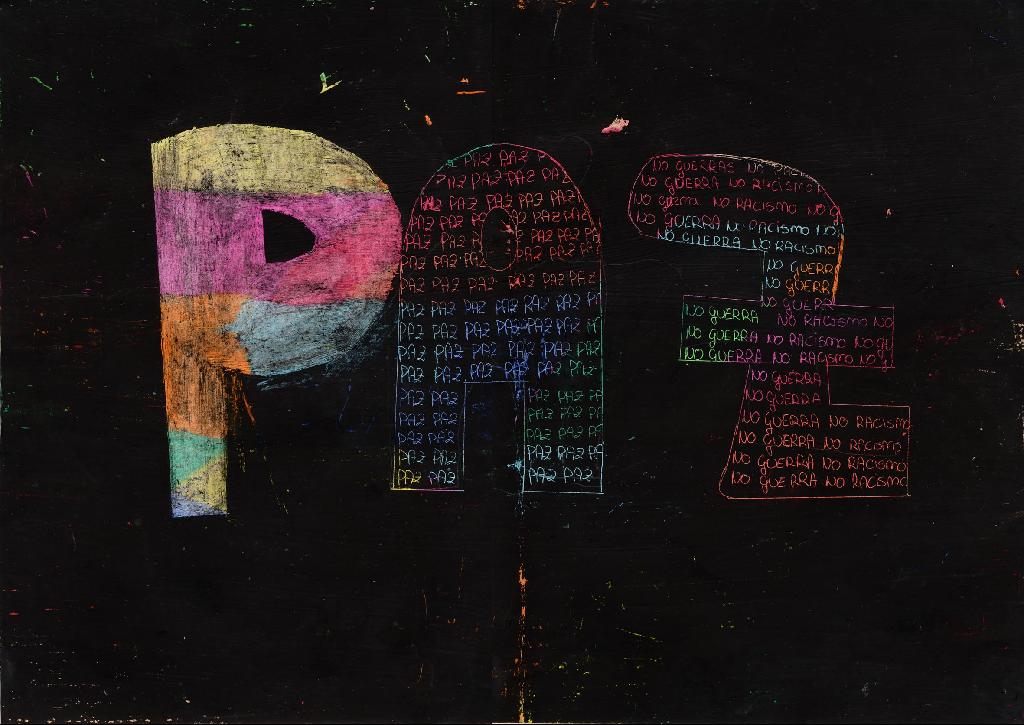 PAZ
PAZ PAZ
PAZ PAZ PAZ
PAZ PAZ PAZ PAZ
PAZ PAZ PAZ PAZ
PAZ PAZ PAZ PAZ
PAZ PAZ PAZ PAZ
PAZ PAZ PAZ PAZ PAZ PAZ
PAZ PAZ PAZ PAZ PAZ PAZ
PAZ PAZ PAZ PAZ PAZ PA
PAZ PAZ PAZ PAZ PAZ PAZ
PAZ PAZ PAZ PAZ PAZ PAZ
PAZ PAZ PAZ PAZ PA
PAZ PAZ PAZ PAZ PA
PAZ PAZ PAZ PAZ PA
PAZ PAZ PAZ PAZ PA
PAZ PAZ PAZ PAZ
NO GUERRAS NO RAC
NO GUERRA NO RACISMO
NO GUERRA NO RACISMO NO G
NO GUERRA NO RACISMO NO
NO GUERRA NO RACISMO
NO GUERR
NO GUERR
NO GUERR
NO GUERRA NO RACISMO NO
NO GUERRA NO RACISMO NO GU
NO GUERRA NO RACISMO NO
NO GUERRA
NO GUERRA
NO GUERRA NO RACISMO
NO GUERRA NO RACISMO
NO GUERRA NO RACISMO
NO GUERRA NO RACISMO